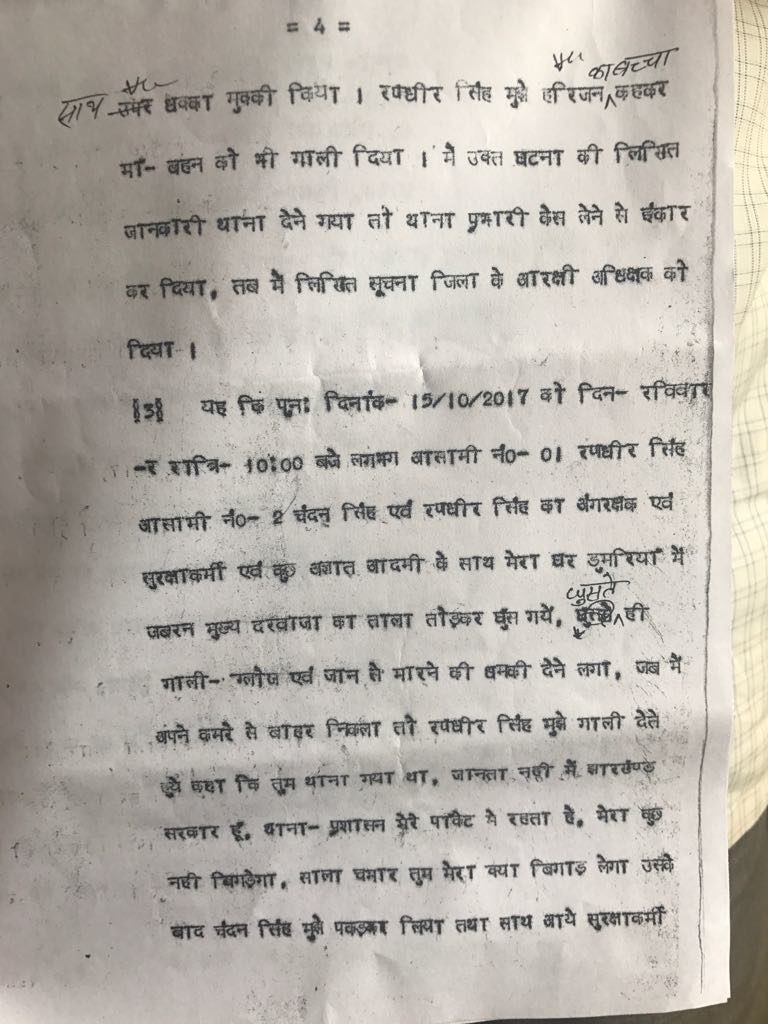 = 4 =
का बच्चा
साथ धक्का मुक्की किया । रणधीर सिंह मुझे हरिजन कहकर
माँ- बहन को भी गाली दिया । मे उक्त घटना की लिखित
जानकारी थाना देने गया तो थाना प्रभारी केस लेने से इंकार
कर दिया, तब में लिखित सूचना जिला के आरक्षी अधिक्षक को
दिया ।
§3§ यह कि पुनः दिनांक- 15/10/2017 को दिन- रविवार
-र रात्रि- 10:00 बजे लगभग आसामी नं०- 01 रणधीर सिंह
आसामी नं०- 2 चंदन सिंह एवं रणधीर सिंह का अंगरक्षक एवं
सुरक्षाकर्मी एवं कुछ अज्ञात आदमी के साथ मेरा घर डुमरिया में
घुसते
जबरन मुख्य दरवाजा का ताला तोड़कर घुस गये, ही
गाली- ग्लोज एवं जान से मारने की धमकी देने लगा, जब में
अपने कमरे से बाहर निकला तो रणधीर सिंह मुझे गाली देते
हुये कहा कि तुम थाना गया था, जानता नही में झारखण्ड
सरकार हूँ, थाना- प्रशासन मेरे पाकेट मे रहता है, मेरा कुछ
नही बिगड़ेगा, साला चमार तुम मेरा क्या बिगाड़ लेगा उसके
बाद चंदन सिंह मुझे पकड़कर लिया तथा साथ आये सुरक्षाकर्मी